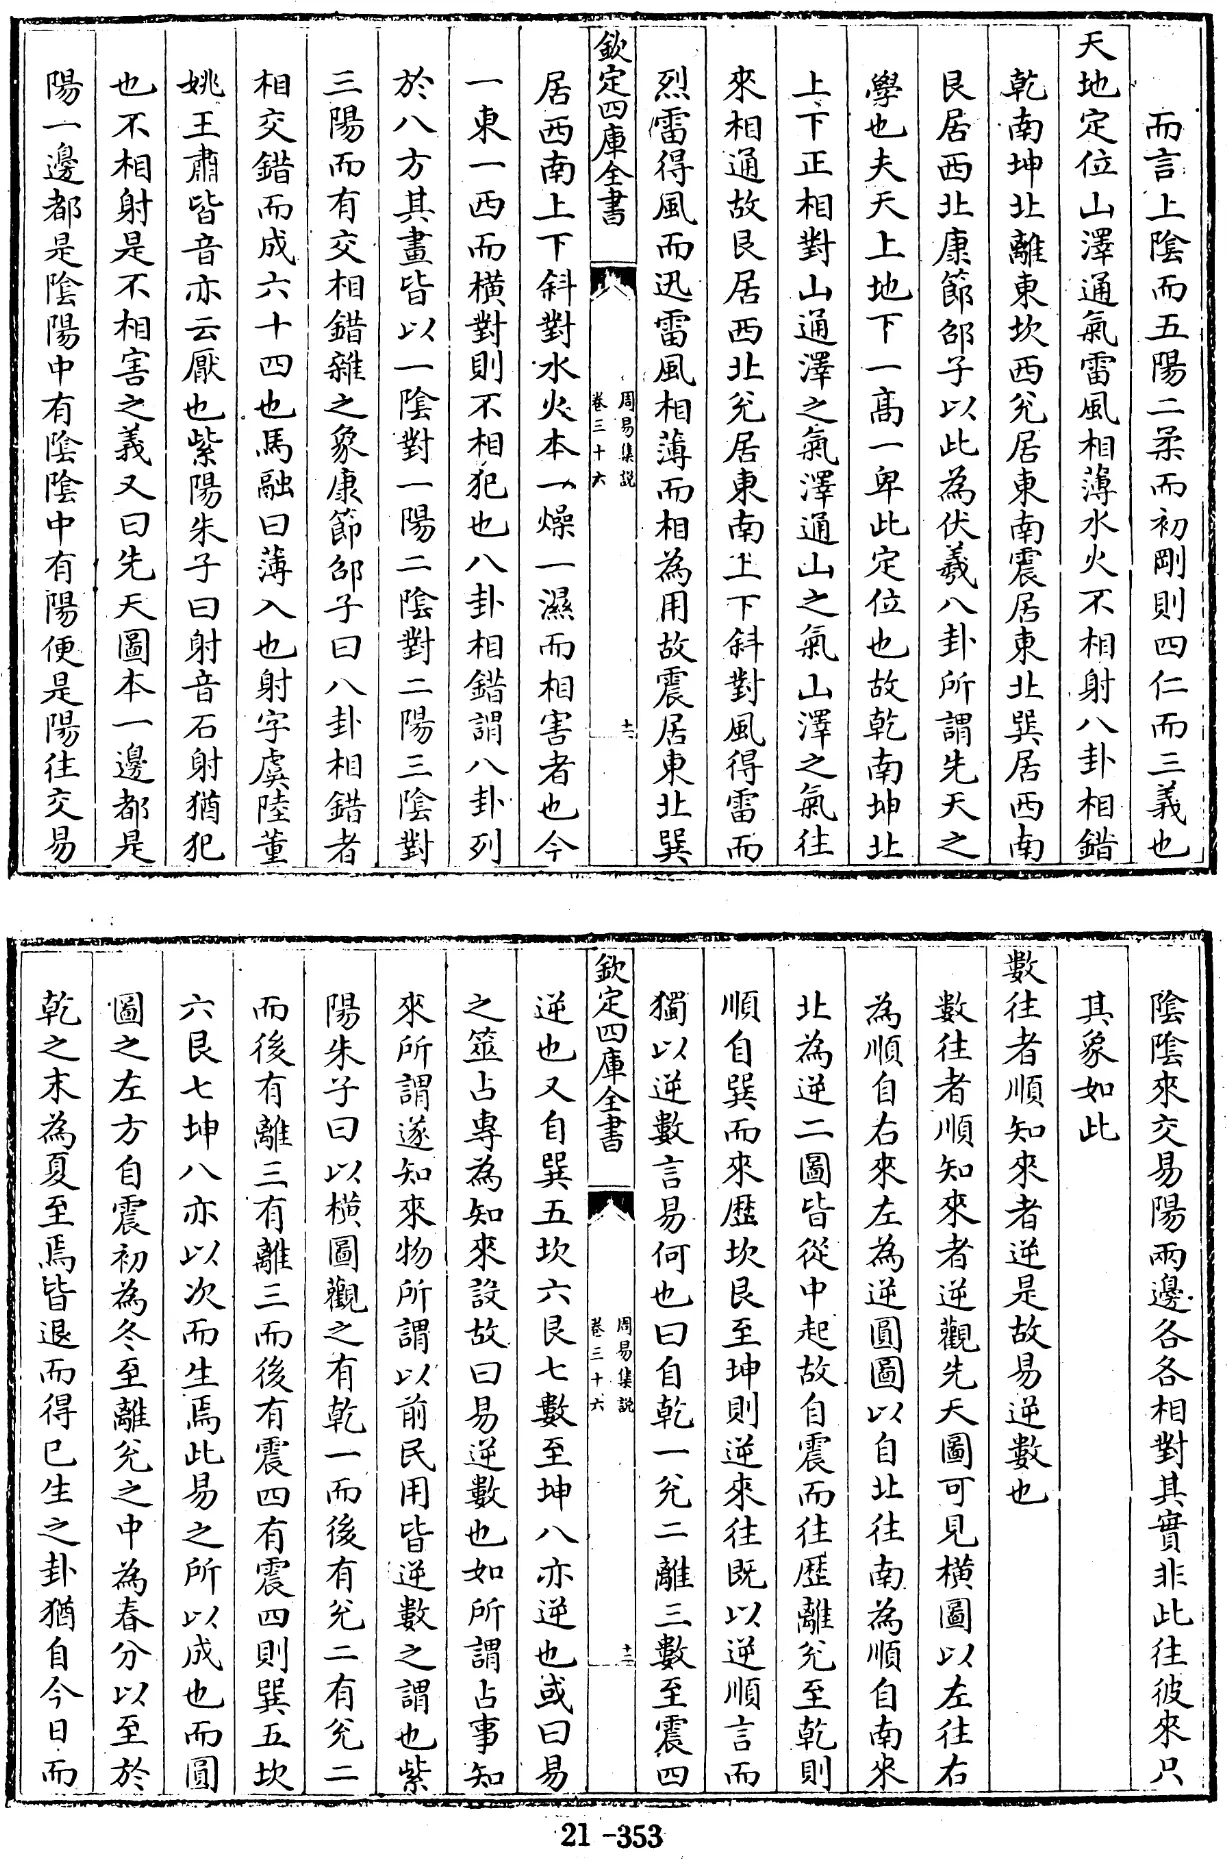 而言上陰而五陽二柔而初剛則四仁而三義也
天地定位山澤通氣雷風相薄水火不相射八卦相錯
乾南坤北離東坎西兊居東南震居東北巽居西南
艮居西北康節邵子以此為伏羲八卦所謂先天之
學也夫天上地下一高一卑此定位也故乾南坤北
上下正相對山通澤之氣澤通山之氣山澤之氣往
來相通故艮居西北兊居東南上下斜對風得雷而
烈雷得風而迅雷風相薄而相為用故震居東北巽
欽定四庫全書
周易集說
卷三十六
十二
居西南上下斜對水火本一燥一濕而相害者也今
一東一西而橫對則不相犯也八卦相錯謂八卦列
於八方其畫皆以一陰對一陽二陰對二陽三陰對
三陽而有交相錯雜之象康節邵子曰八卦相錯者
相交錯而成六十四也馬融曰薄入也射字虞陸董
姚王肅皆音亦云厭也紫陽朱子曰射音石射猶犯
也不相射是不相害之義又曰先天圖本一邊都是
陽一邊都是陰陽中有陰陰中有陽便是陽往交易
陰陰來交易陽兩邊各各相對其實非此往彼來只
其象如此
數往者順知來者逆是故易逆數也
數往者順知來者逆觀先天圖可見橫圖以左往右
為順自右來左為逆圓圖以自北往南為順自南來
北為逆二圖皆從中起故自震而往歷離兊至乾則
順自巽而來歷坎艮至坤則逆來往既以逆順言而
獨以逆數言易何也曰自乾一兊二離三數至震四
欽定四庫全書
周易集說
卷三十六
十三
逆也又自巽五坎六艮七數至坤八亦逆也或曰易
之筮占專為知來設故曰易逆數也如所謂占事知
來所謂遂知來物所謂以前民用皆逆數之謂也紫
陽朱子曰以橫圖觀之有乾一而後有兊二有兊二
而後有離三有離三而後有震四有震四則巽五坎
六艮七坤八亦以次而生焉此易之所以成也而圓
圖之左方自震初為冬至離兊之中為春分以至於
乾之末為夏至焉皆退而得已生之卦猶自今日而
21-353